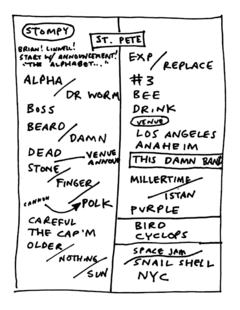 STOMPY
ST. PETE
BRIAN! LINNELL!
START W/ ANNOUNCEMENT!
"THE ALPHABET..."
ALPHA/
DR WORM
BOSS
BEARD/
DAMN
DEAD
VENUE
ANNOUN
STONE/
FINGER/
CANNON
POLK
CAREFUL
THE CAP'M
OLDER/
NOTHING/
SUN
EXP/
REPLACE
#3
BEE
DRINK
VENUE
LOS ANGELES
ANAHEIM
THIS DAMN BAND
MILLERTIME/
ISTAN
PURPLE
BIRD
CYCLOPS
SPACE JAM
SNAIL SHELL
NYC